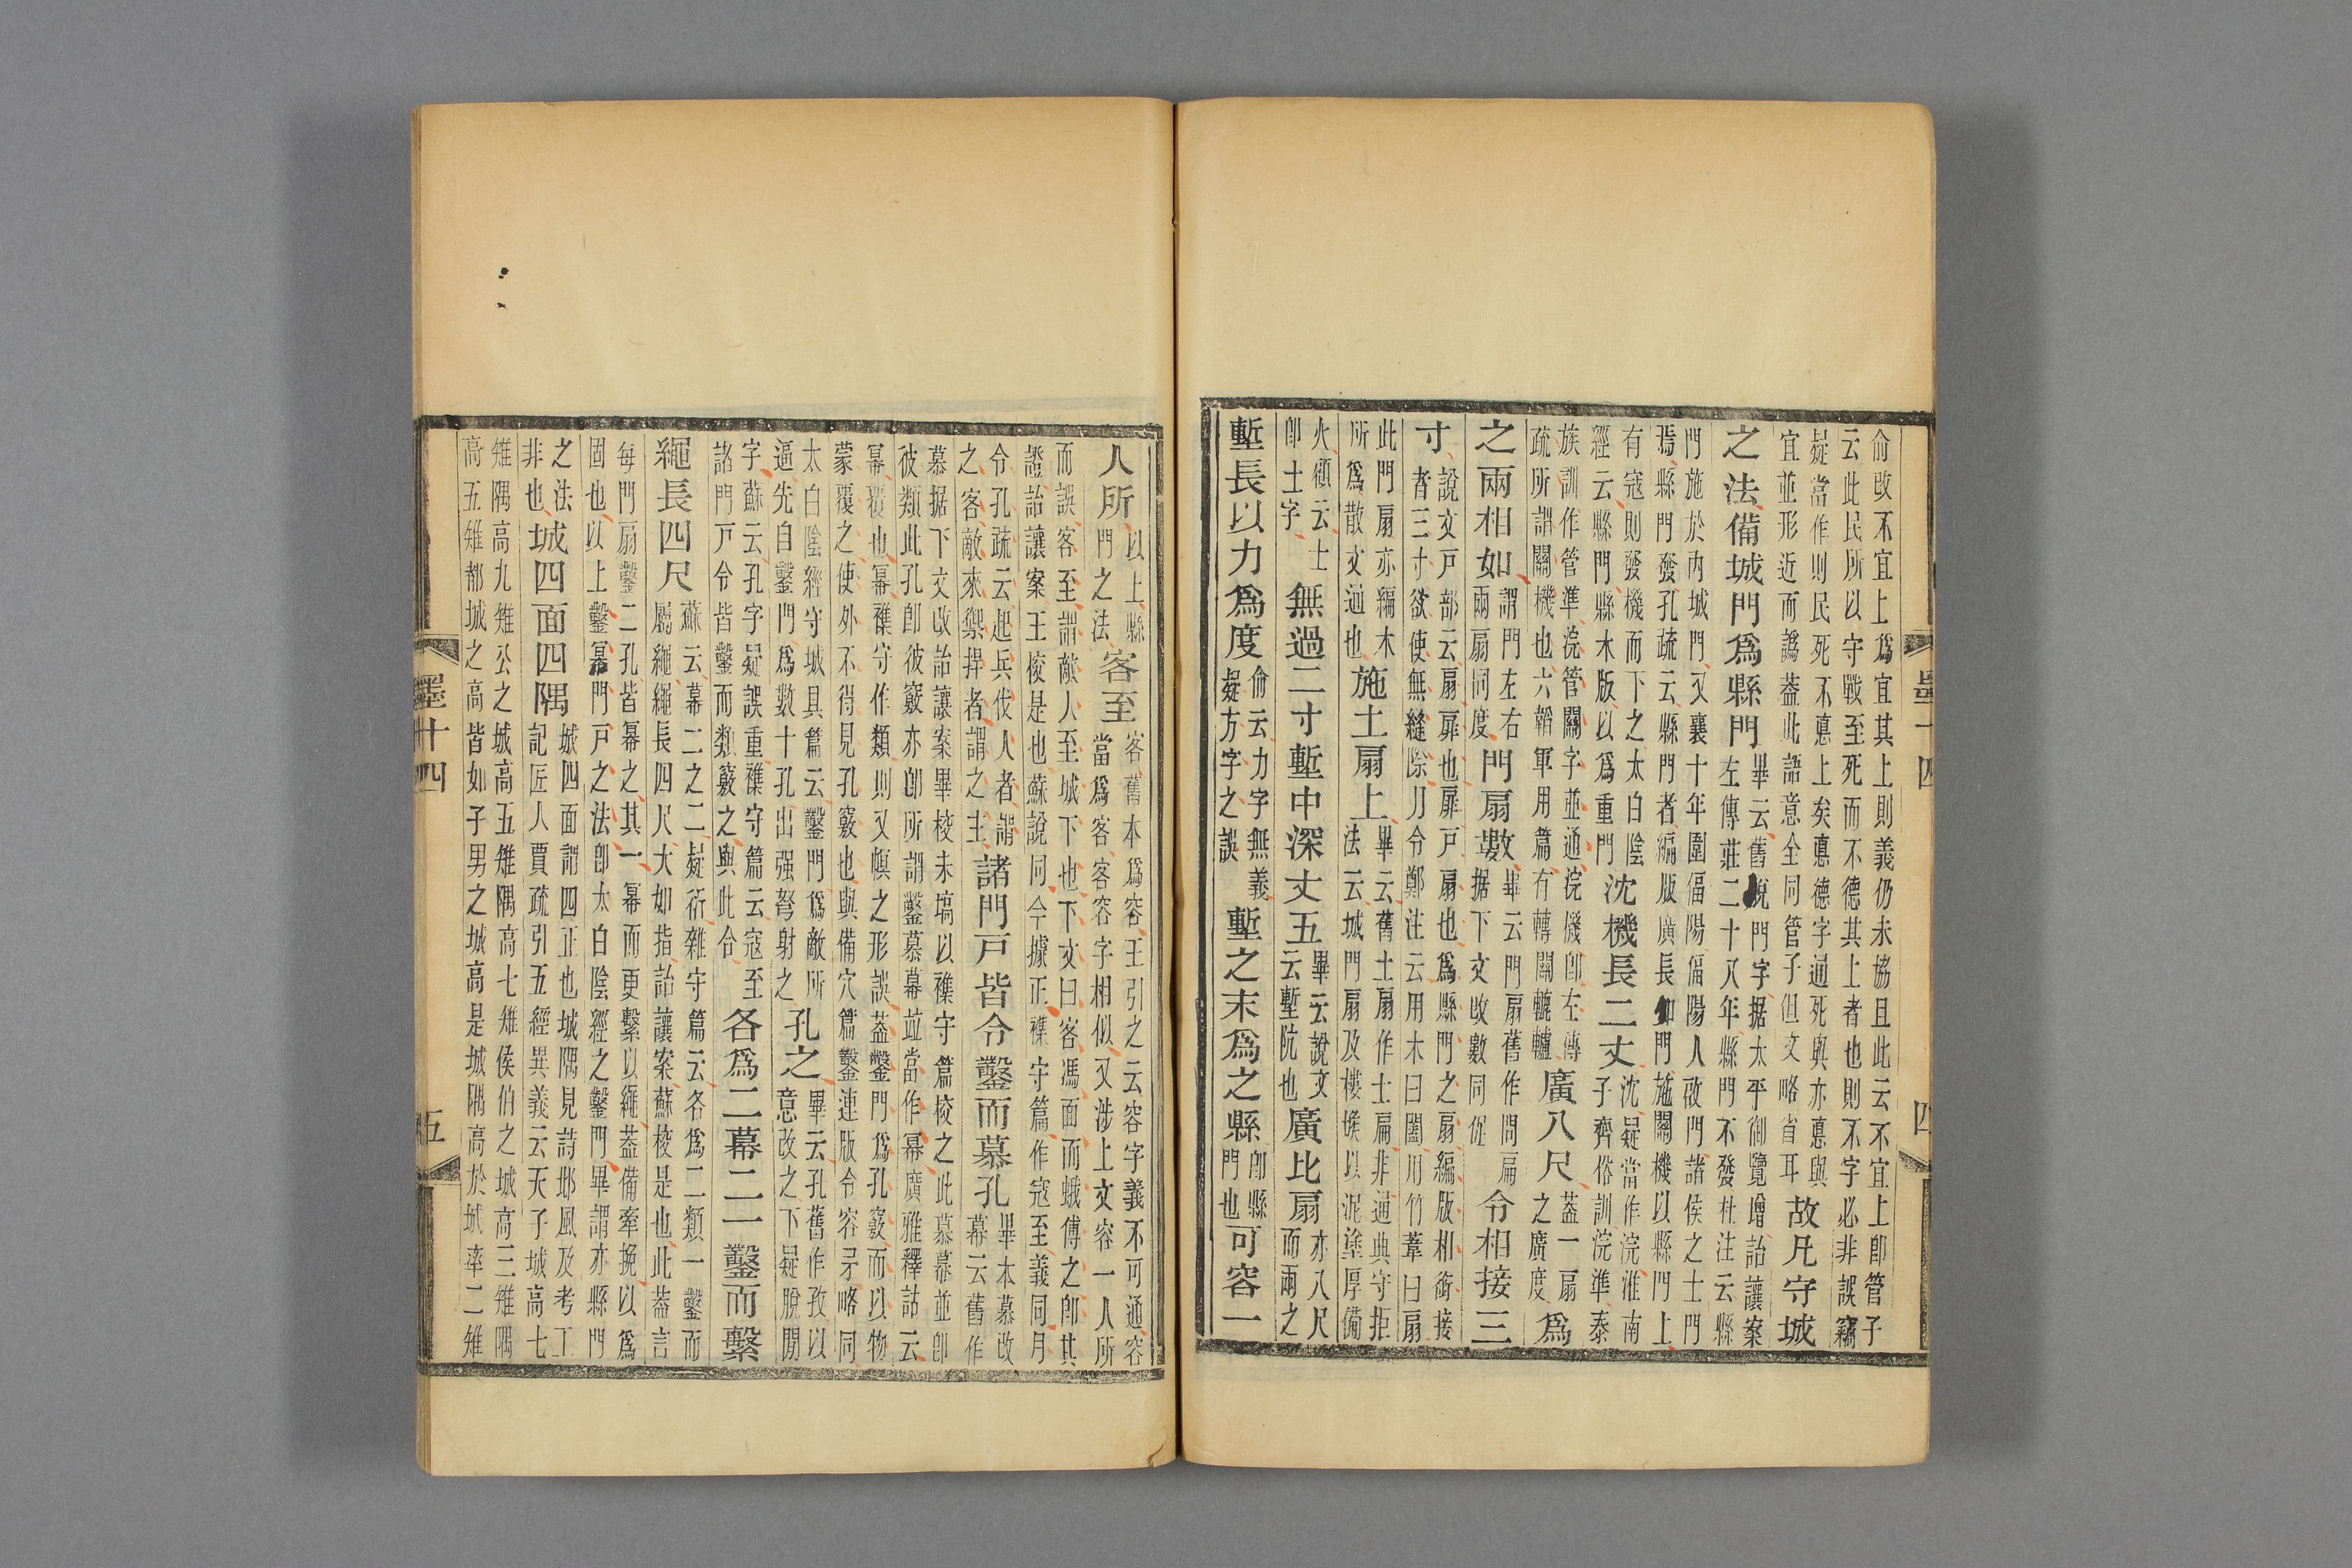 俞改不宜上爲宜其上則義仍未協且此云不宜上卽管子
云此民所以守戰至死而不德其上者也則不字必非誤竊
疑當作則民死不悳上矣悳德字通死與亦悳與
宜並形近而譌蓋此語意全同管子但文略省耳故凡守城
之法備城門爲縣門畢云舊說門字据太平御覽增詒讓案
左傳莊二十八年縣門不發杜注云縣
門施於內城門又襄十年圍偪陽偪陽人啟門諸侯之士門
焉縣門發孔疏云縣門者編版廣長如門施關機以縣門上
有寇則發機而下之太白陰
經云縣門縣木版以爲重門沈機長二丈沈疑當作浣淮南
子齊俗訓浣準泰
族訓作管準浣管關字並通浣機卽左傳
疏所謂關機也六韜軍用篇有轉關轆轤廣八尺蓋一扇
之廣度爲
之兩相如謂門左右
兩扇同度門扇數畢云門扇舊作問扁
据下文改數同促令相接三
寸說文戶部云扇扉也扉戶扇也爲縣門之扇編版相銜接
者三寸欲使無縫隙月令鄭注云用木曰闔用竹葦曰扇
此門扇亦編木
所爲散文通也施土扇上畢云舊土扇作士扁非通典守拒
法云城門扇及樓堠以泥塗厚備
火顧云士
卽土字無過二寸塹中深丈五畢云說文
云塹阬也廣比扇亦八尺
而兩之
塹長以力爲度俞云力字無義
疑方字之誤塹之末爲之縣卽縣
門也可容一
墨十四
四
人所以上縣
門之法客至客舊本爲容王引之云容字義不可通容
當爲客客容字相似又涉上文容一人所
而誤客至謂敵人至城下也下文曰客馮面而蛾傅之卽其
證詒讓案王校是也蘇說同今據正襍守篇作寇至義同月
令孔疏云起兵伐人者謂
之客敵來禦捍者謂之主諸門戶皆令鑿而慕孔畢本慕改
幕云舊作
慕据下文改詒讓案畢校未塙以襍守篇校之此慕幕並卽
彼類此孔卽彼竅亦卽所謂鑿慕幕竝當作冪廣雅釋詁云
冪覆也冪襍守作類則又幎之形誤蓋鑿門爲孔竅而以物
蒙覆之使外不得見孔竅也與備穴篇鑿連版令容矛略同
太白陰經守城具篇云鑿門爲敵所
逼先自鑿門爲數十孔出强弩射之孔之畢云孔舊作孜以
意改之下疑脫閒
字蘇云孔字疑誤重襍守篇云寇至
諸門戶令皆鑿而類竅之與此合各爲二幕二一鑿而繫
繩長四尺蘇云幕二之二疑衍雜守篇云各爲二類一鑿而
屬繩繩長四尺大如指詒讓案蘇校是也此蓋言
每門扇鑿二孔皆冪之其一冪而更繫以繩蓋備牽挽以爲
固也以上鑿冪門戶之法卽太白陰經之鑿門畢謂亦縣門
之法
非也城四面四隅城四面謂四正也城隅見詩邶風及考工
記匠人賈疏引五經異義云天子城高七
雉隅高九雉公之城高五雉隅高七雉侯伯之城高三雉隅
高五雉都城之高皆如子男之城高是城隅高於城率二雉
墨十四
五